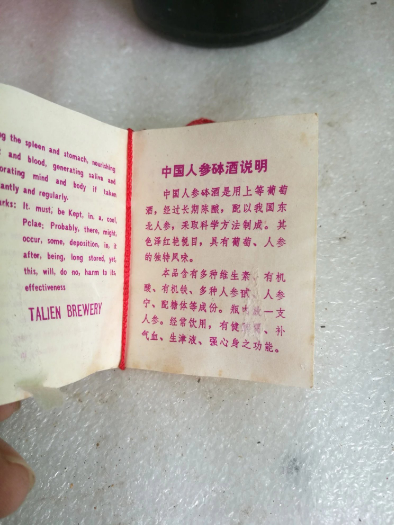 ng the spleen and stomach, nourishing
and blood, generating saliva and
orating mind and body if taken
antly and regularly.
arks: It. must, be Kept, in. a, cool,
Pclae; Probably, there, might,
occur, some, deposition, in, it
after, being, long stored, yet,
this, will, do no, harm to its
effectiveness
TALIEN BREWERY
中国人参砵酒说明
中国人参砵酒是用上等葡萄
酒，经过长期陈酿，配以我国东
北人参，采取科学方法制成。其
色泽红艳悦目，具有葡萄、人参
的独特风味。
本品含有多种维生素、有机
酸、有机铁、多种人参甙、人参
宁、配糖体等成份。瓶内放一支
人参。经常饮用，有健脾胃、补
气血、生津液、强心身之功能。